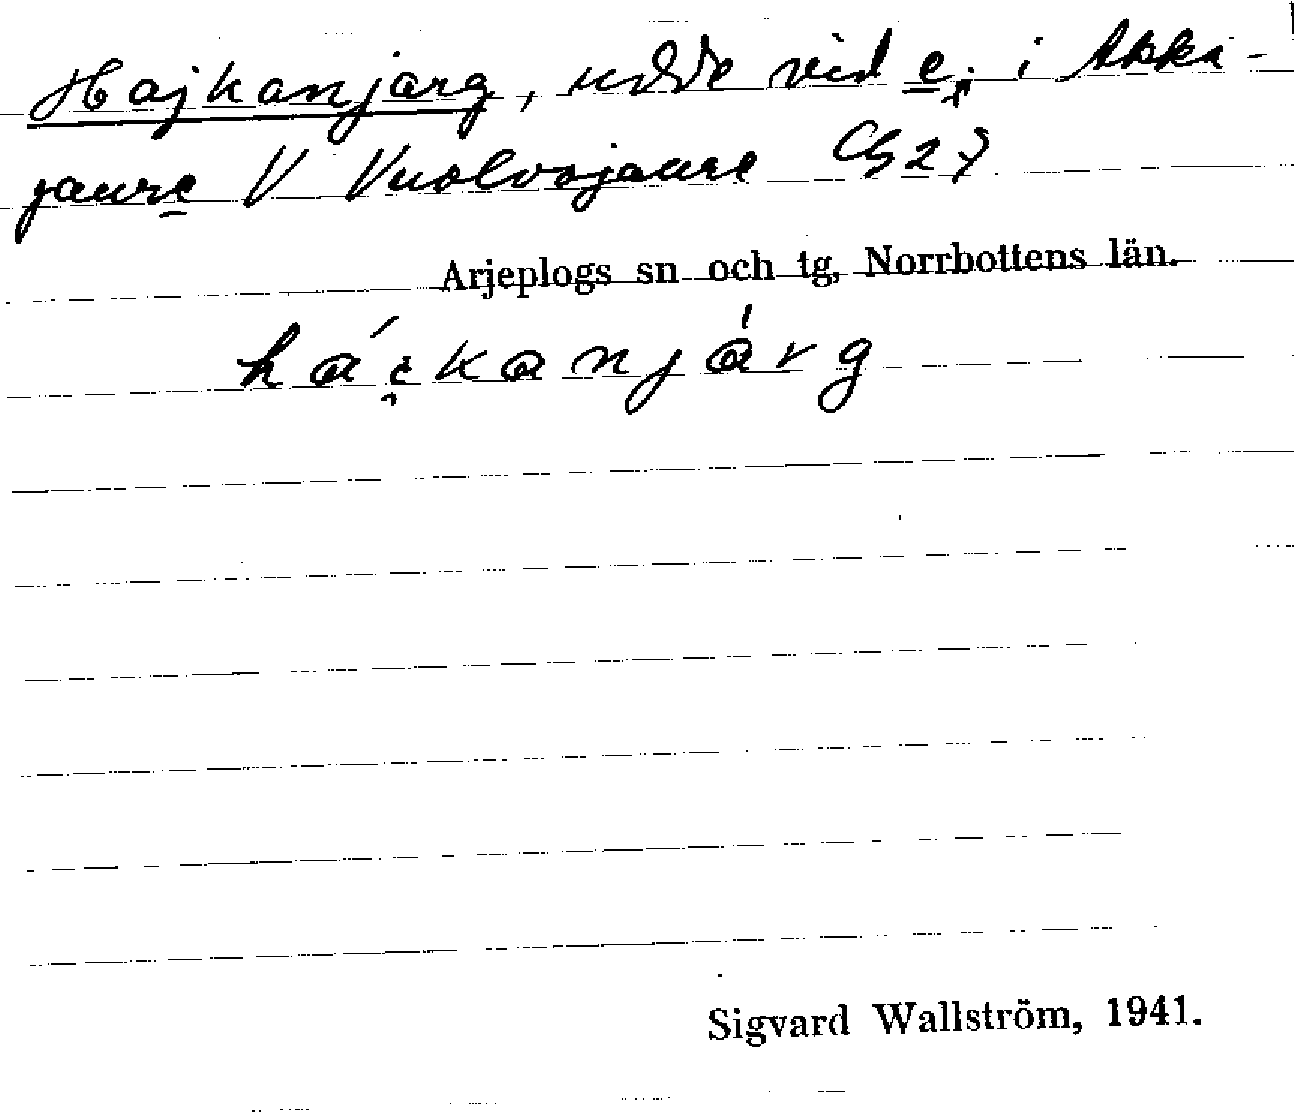 Hajkanjarg, udde vid ej i Akka-
jaure V Vuolvojaure Cg 27
Arjeplogs sn och tg, Norrbottens län.
hái̯kanjárg
Sigvard Wallström, 1941.